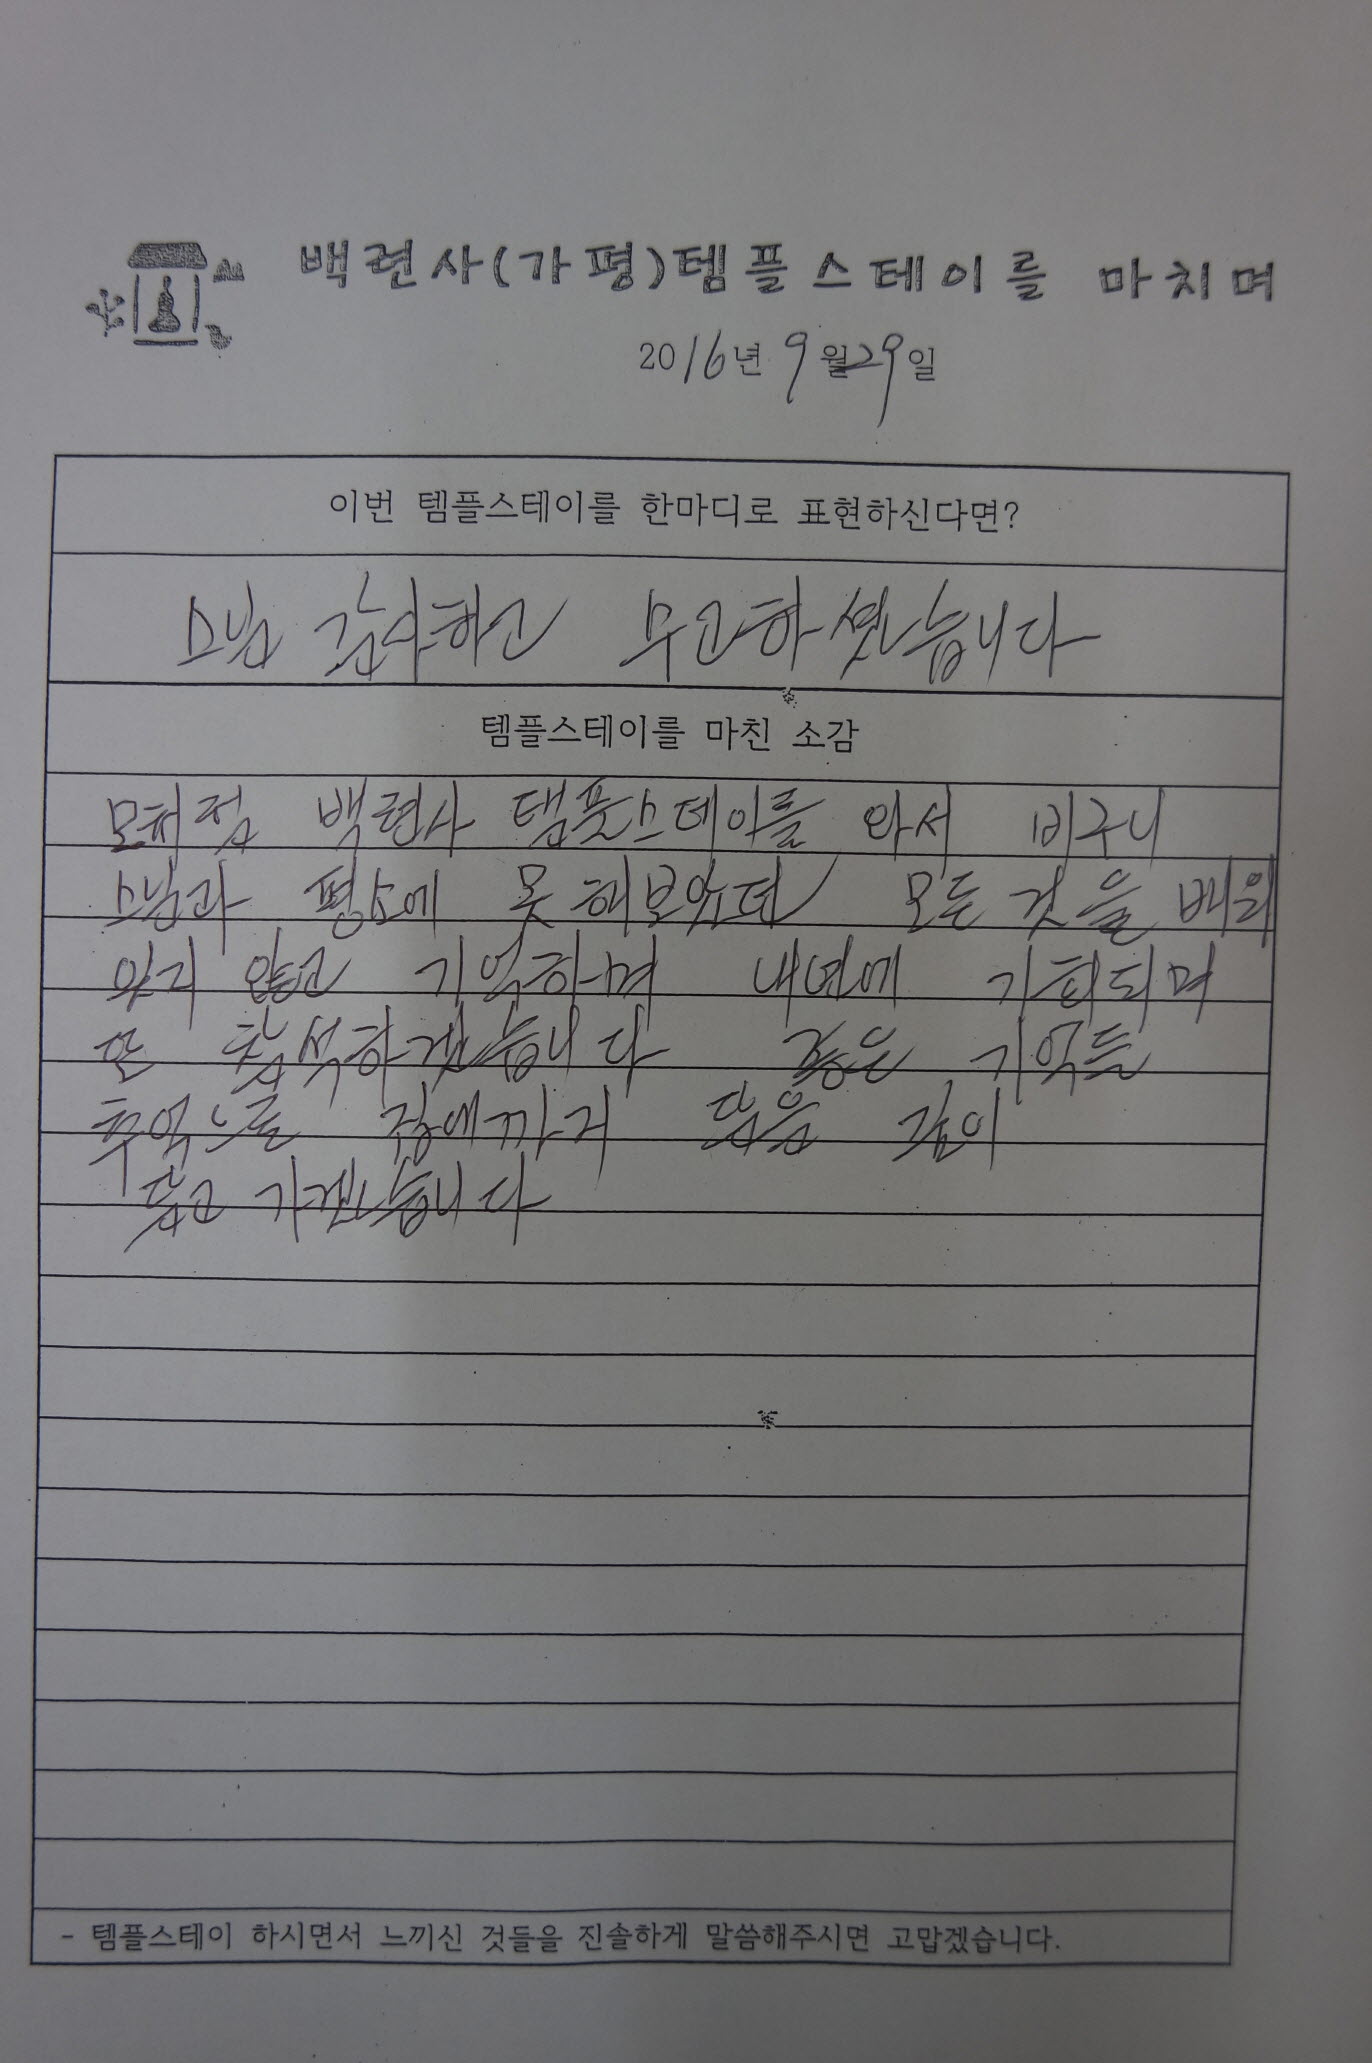 백련사(가평)템플스테이를 마치며
2016년 9월29일
이번 템플스테이를 한마디로 표현하신다면?
스님 감사하고 수고하셨습니다
템플스테이를 마친 소감
모처럼 백련사 템플스테이를 와서 비구니
스님과 평소에 못 해보았던 모든 것을 배워
잊지 않고 기억하며 내년에 기회되며
또 참석하겠습니다 좋은 기억들
추억으로 집에까지 마음 깊이
담고 가겠습니다
- 템플스테이 하시면서 느끼신 것들을 진솔하게 말씀해주시면 고맙겠습니다.